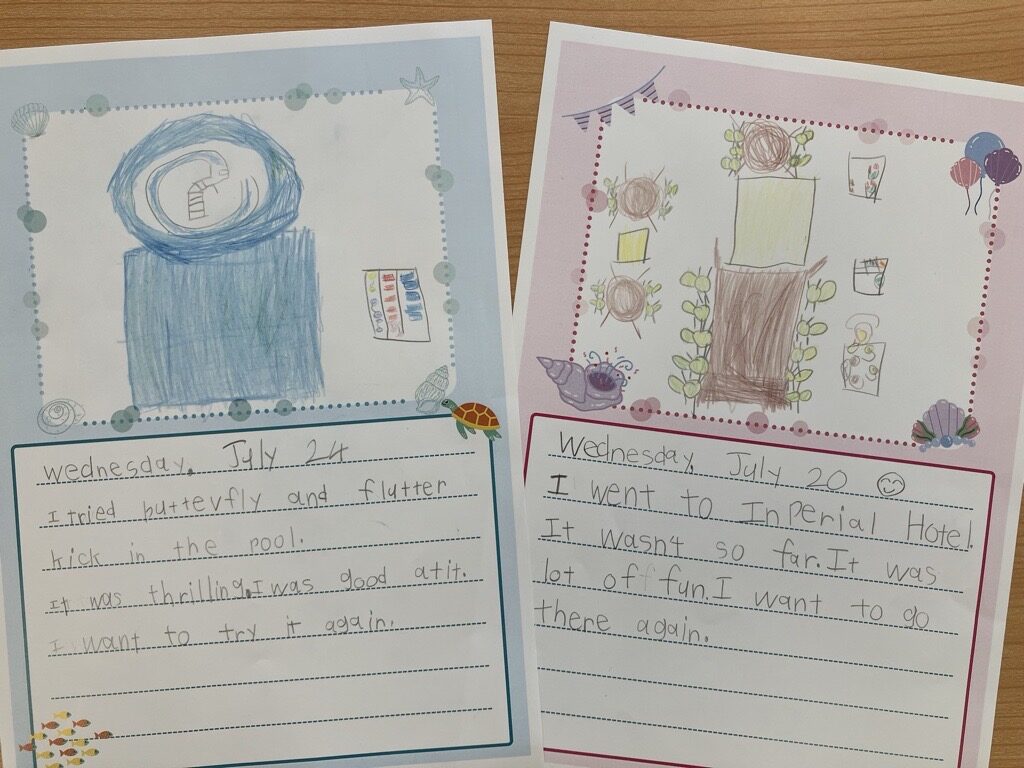 wednesday. July 24
I tried butterfly and flutter
kick in the pool.
It was thrilling. I was good at it.
I want to try it again.
Wednesday, July 20
I went to Inperial Hotel.
It wasn't so far. It was
lot off fun. I want to go
there again.